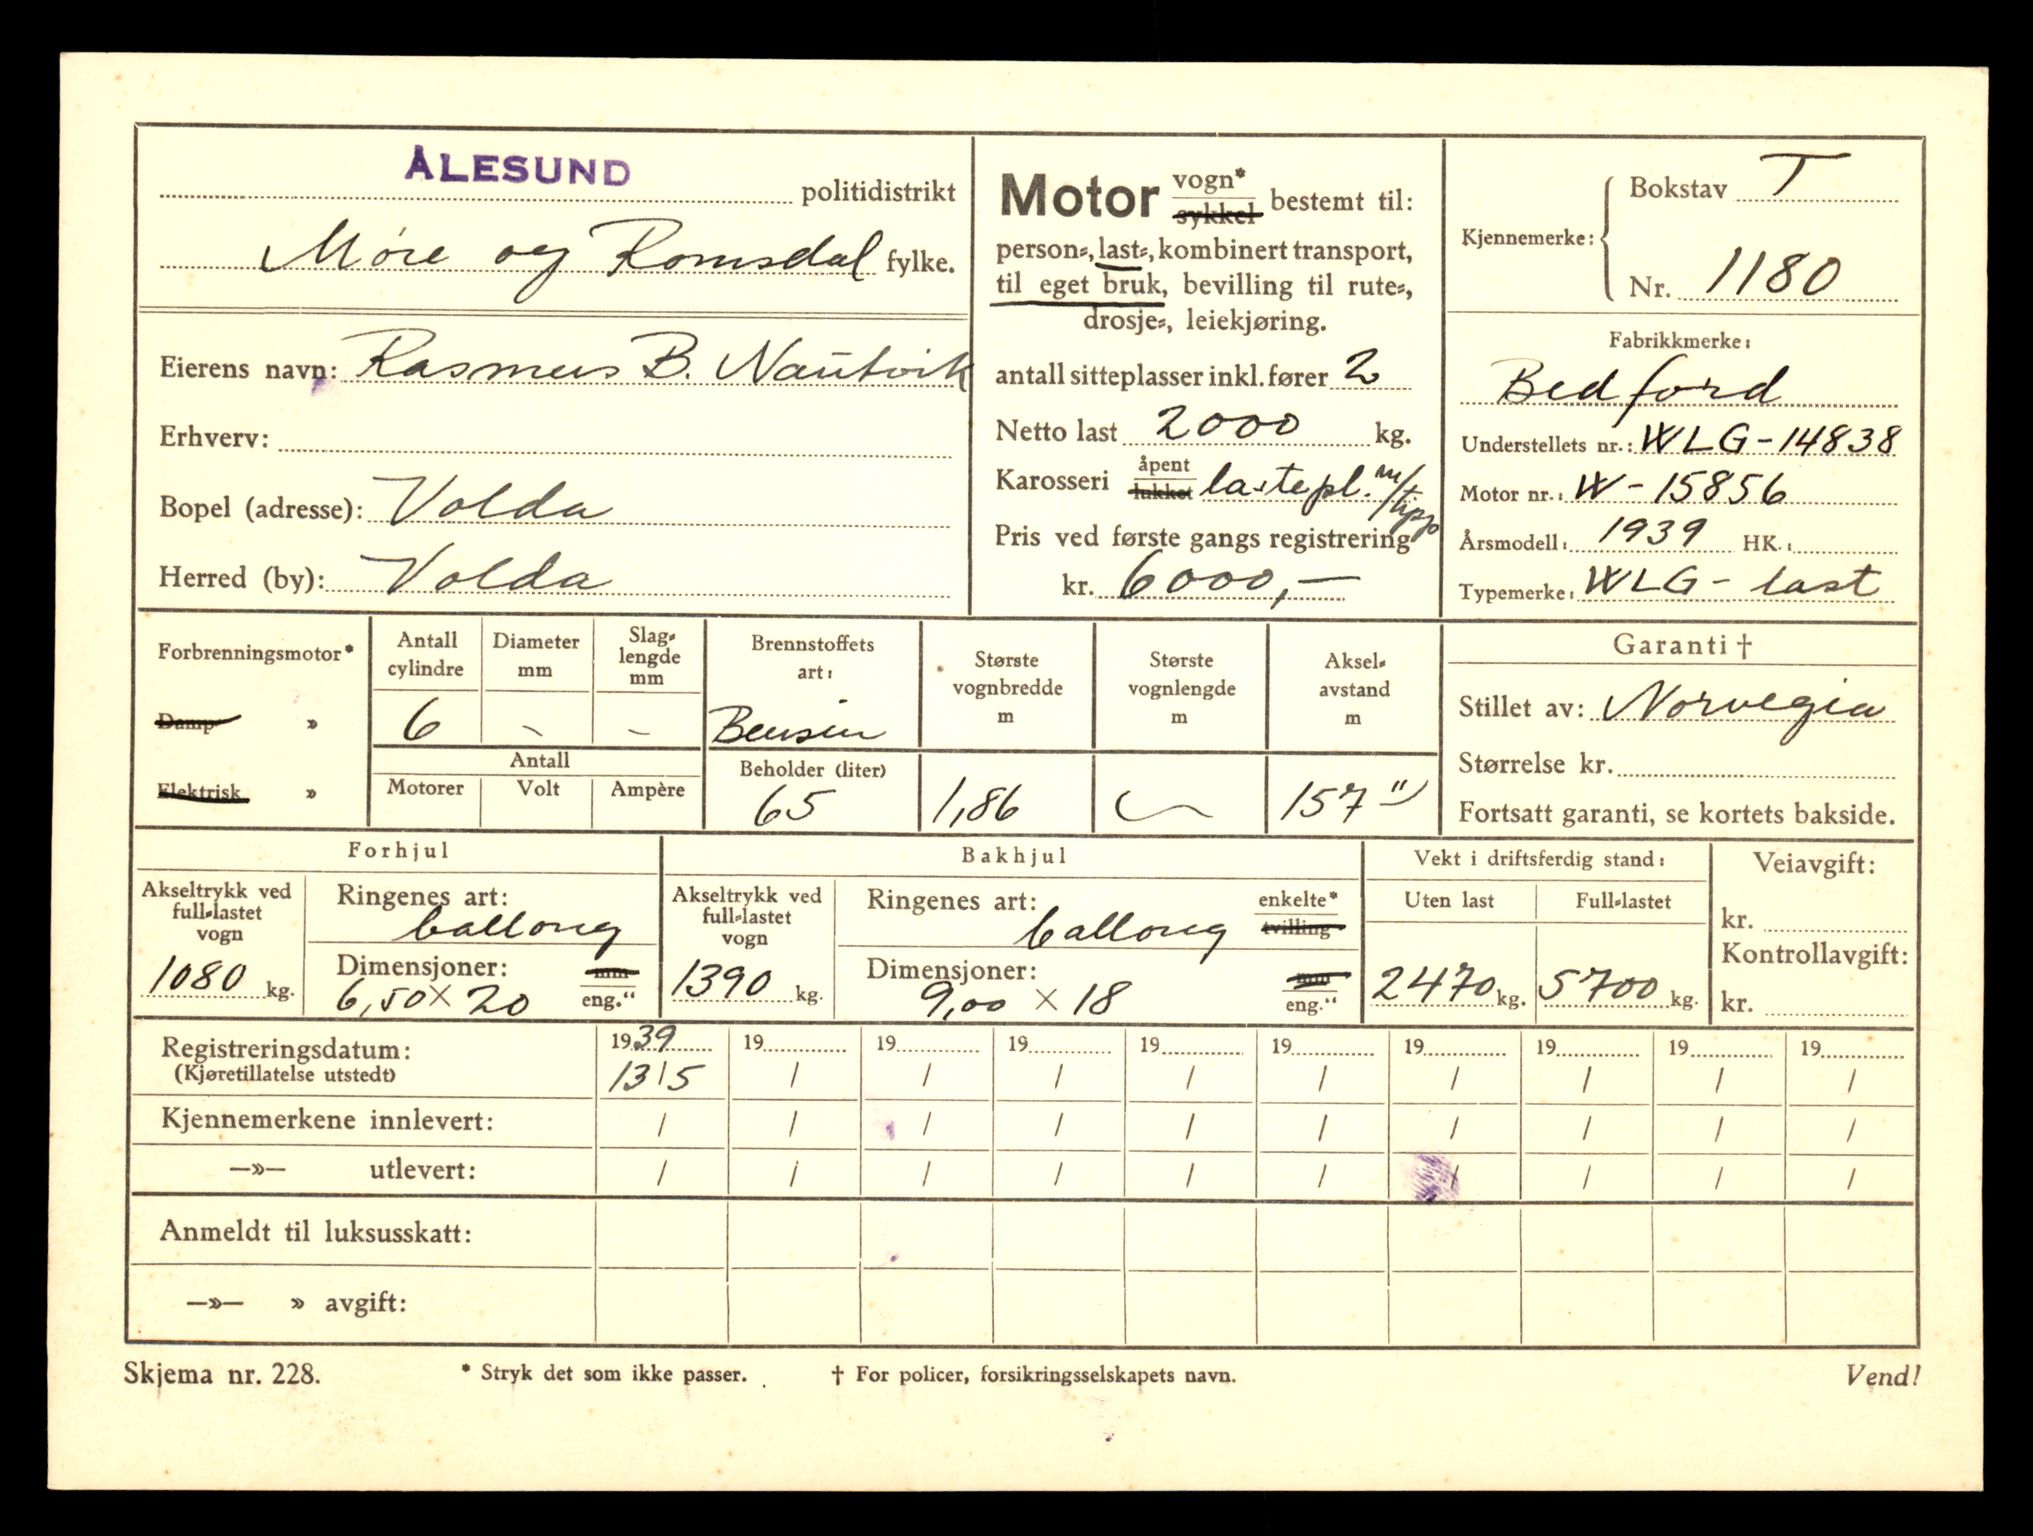 ÅLESUND politidistrikt
Møre og Romsdal fylke.
Eierens navn: Rasmus B. Nautvik
Erhverv:
Bopel (adresse): Volda
Herred (by): Volda
Motor vogn* sykkel bestemt til:
person-, last-, kombinert transport,
til eget bruk, bevilling til rute-,
drosje-, leiekjøring.
antall sitteplasser inkl. fører 2
Netto last 2000 kg.
Karosseri åpent lukket lastepl. m/tipp
Pris ved første gangs registrering
kr. 6000,—
Kjennemerke: Bokstav T
Nr. 1180
Fabrikkmerke:
Bedford
Understellets nr.: WLG-14838
Motor nr.: W-15856
Årsmodell: 1939 HK.:
Typemerke: WLG- last
Forbrenningsmotor*
Damp »
Elektrisk »
Antall cylindre
Diameter mm
Slag-lengde mm
6 - -
Antall
Motorer Volt Ampère
Brennstoffets art:
Bensin
Beholder (liter)
65
Største vognbredde m
1,86
Største vognlengde m
Aksel-avstand m
157"
Garanti †
Stillet av: Norvegia
Størrelse kr.
Fortsatt garanti, se kortets bakside.
Forhjul
Akseltrykk ved full-lastet vogn
1080 kg.
Ringenes art:
ballong
Dimensjoner: mm
6,50 × 20 eng."
Bakhjul
Akseltrykk ved full-lastet vogn
1390 kg.
Ringenes art: enkelte*
ballong tvilling
Dimensjoner: mm
9,00 × 18 eng."
Vekt i driftsferdig stand:
Uten last Full-lastet
2470 kg. 5700 kg.
Veiavgift:
kr.
Kontrollavgift:
kr.
Registreringsdatum: 1939 19 19 19 19 19 19 19 19 19
(Kjøretillatelse utstedt) 13/5 / / / / / / / / /
Kjennemerkene innlevert: / / / / / / / / / /
—»— utlevert: / / / / / / / / / /
Anmeldt til luksusskatt:
—»— » avgift:
Skjema nr. 228. * Stryk det som ikke passer. † For policer, forsikringsselskapets navn. Vend!